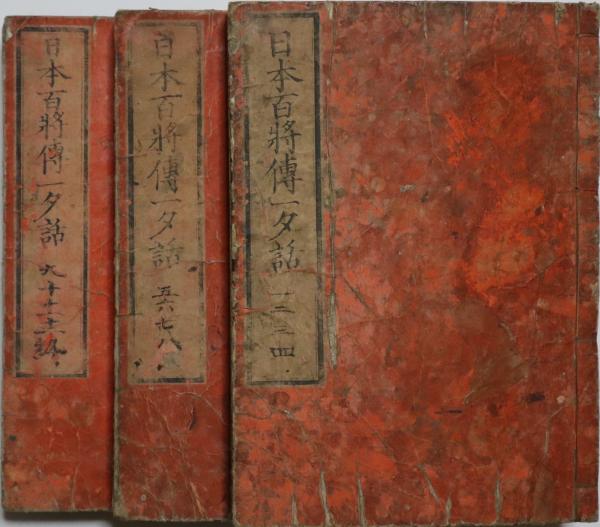 日本百將傳一夕話 一二三四
日本百將傳一夕話 五六七八
日本百將傳一夕話 九十十一十二終